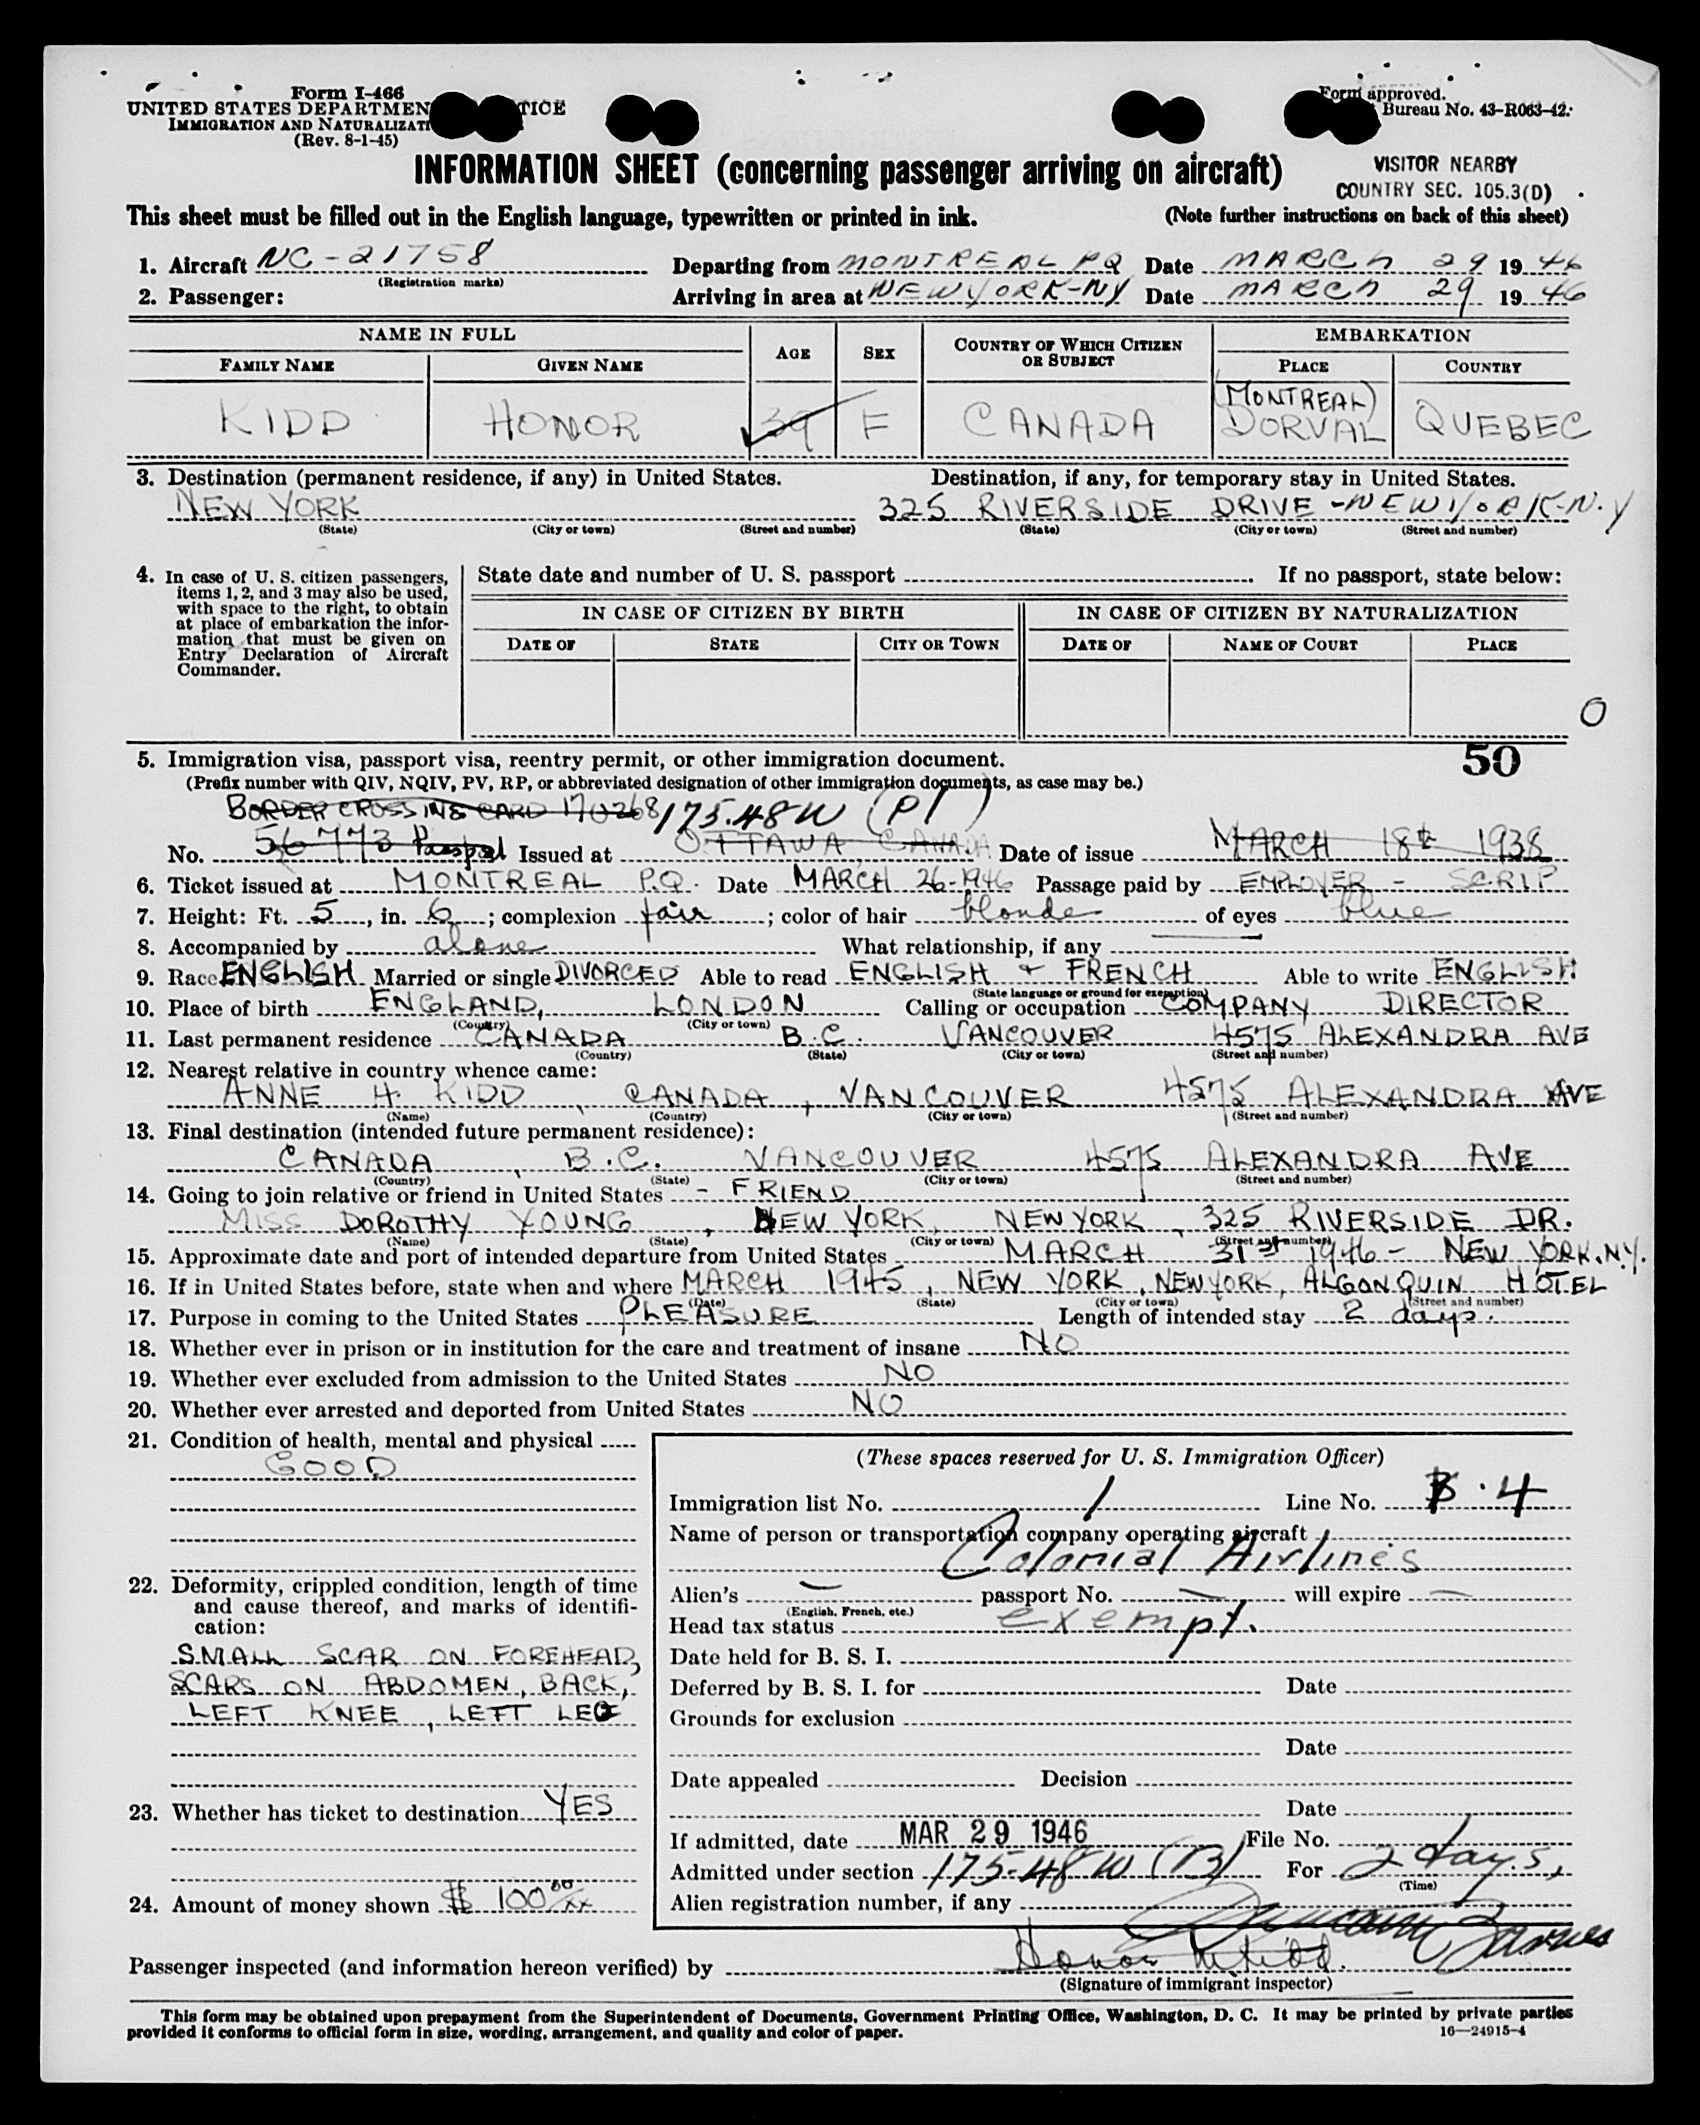 Form I-466
UNITED STATES DEPARTMEN TICE
IMMIGRATION AND NATURALIZATI
(Rev. 8-1-45)
Form approved.
Bureau No. 43-R063-42.
INFORMATION SHEET (concerning passenger arriving on aircraft)
VISITOR NEARBY
COUNTRY SEC. 105.3(D)
This sheet must be filled out in the English language, typewritten or printed in ink. (Note further instructions on back of this sheet)
1. Aircraft NC-21758 Departing from MONTREAL PQ Date MARCH 29 1946
(Registration marks)
2. Passenger: Arriving in area at NEW YORK-NY Date MARCH 29 1946
NAME IN FULL AGE SEX COUNTRY OF WHICH CITIZEN OR SUBJECT EMBARKATION
FAMILY NAME GIVEN NAME PLACE COUNTRY
KIDD HONOR 39 F CANADA (MONTREAL) DORVAL QUEBEC
3. Destination (permanent residence, if any) in United States. Destination, if any, for temporary stay in United States.
NEW YORK 325 RIVERSIDE DRIVE - NEW YORK-N.Y
(State) (City or town) (Street and number) (State) (City or town) (Street and number)
4. In case of U. S. citizen passengers, items 1, 2, and 3 may also be used, with space to the right, to obtain at place of embarkation the information that must be given on Entry Declaration of Aircraft Commander.
State date and number of U. S. passport If no passport, state below:
IN CASE OF CITIZEN BY BIRTH IN CASE OF CITIZEN BY NATURALIZATION
DATE OF STATE CITY OR TOWN DATE OF NAME OF COURT PLACE
O
50
5. Immigration visa, passport visa, reentry permit, or other immigration document.
(Prefix number with QIV, NQIV, PV, RP, or abbreviated designation of other immigration documents, as case may be.)
BORDER CROSSING CARD 170268 175.48W (PI)
No. 56773 Passport Issued at OTTAWA CANADA Date of issue MARCH 18th 1938
6. Ticket issued at MONTREAL P.Q. Date MARCH 26-1946 Passage paid by EMPLOYER - SCRIP
7. Height: Ft. 5, in. 6; complexion fair; color of hair blonde of eyes blue
8. Accompanied by alone What relationship, if any
9. Race ENGLISH Married or single DIVORCED Able to read ENGLISH + FRENCH Able to write ENGLISH
(State language or ground for exemption)
10. Place of birth ENGLAND, LONDON Calling or occupation COMPANY DIRECTOR
(Country) (City or town)
11. Last permanent residence CANADA B.C. VANCOUVER 4575 ALEXANDRA AVE
(Country) (State) (City or town) (Street and number)
12. Nearest relative in country whence came:
ANNE H. KIDD, CANADA, VANCOUVER 4575 ALEXANDRA AVE
(Name) (Country) (City or town) (Street and number)
13. Final destination (intended future permanent residence):
CANADA, B.C. VANCOUVER 4575 ALEXANDRA AVE
(Country) (State) (City or town) (Street and number)
14. Going to join relative or friend in United States - FRIEND
MISS DOROTHY YOUNG, NEW YORK, NEW YORK, 325 RIVERSIDE DR.
(Name) (State) (City or town) (Street and number)
15. Approximate date and port of intended departure from United States MARCH 31st 1946 - NEW YORK, N.Y.
16. If in United States before, state when and where MARCH 1945, NEW YORK, NEW YORK, ALGONQUIN HOTEL
(Date) (State) (City or town) (Street and number)
17. Purpose in coming to the United States PLEASURE Length of intended stay 2 days.
18. Whether ever in prison or in institution for the care and treatment of insane NO
19. Whether ever excluded from admission to the United States NO
20. Whether ever arrested and deported from United States NO
21. Condition of health, mental and physical
GOOD
22. Deformity, crippled condition, length of time and cause thereof, and marks of identification:
SMALL SCAR ON FOREHEAD,
SCARS ON ABDOMEN, BACK,
LEFT KNEE, LEFT LEG
23. Whether has ticket to destination YES
24. Amount of money shown $ 100 00/xx
(These spaces reserved for U. S. Immigration Officer)
Immigration list No. 1 Line No. 4
Name of person or transportation company operating aircraft
Colonial Airlines
Alien's — passport No. — will expire —
(English, French, etc.)
Head tax status exempt.
Date held for B. S. I.
Deferred by B. S. I. for Date
Grounds for exclusion
Date
Date appealed Decision
Date
If admitted, date MAR 29 1946 File No.
Admitted under section 175-48W (B) For 2 days,
(Time)
Alien registration number, if any
Passenger inspected (and information hereon verified) by Honor M Kidd.
(Signature of immigrant inspector)
This form may be obtained upon prepayment from the Superintendent of Documents, Government Printing Office, Washington, D. C. It may be printed by private parties
provided it conforms to official form in size, wording, arrangement, and quality and color of paper. 16—24915-4